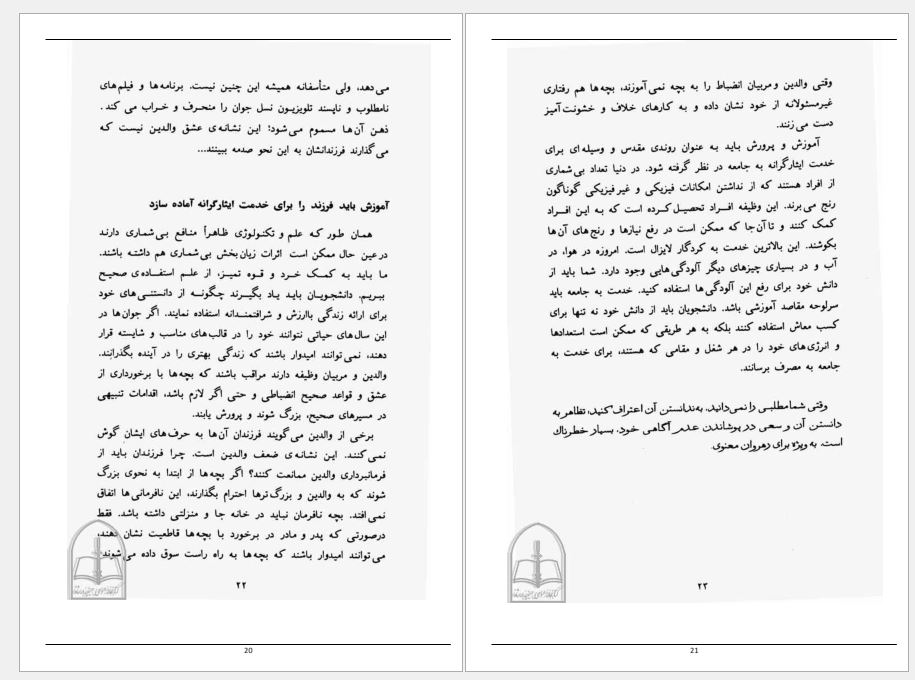 می‌دهد، ولی متأسفانه همیشه این چنین نیست. برنامه‌ها و فیلم‌های
نامطلوب و ناپسند تلویزیون نسل جوان را منحرف و خراب می کند .
ذهن آن‌ها مسموم می‌شود؛ این نشانه‌ی عشق والدین نیست که
می‌گذارند فرزندانشان به این نحو صدمه ببینند...
آموزش باید فرزند را برای خدمت ایثارگرانه آماده سازد
همان طور که علم و تکنولوژی ظاهراً منافع بی‌شماری دارند
درعین حال ممکن است اثرات زیان‌بخش بی‌شماری هم داشته باشند.
ما باید به کمک خرد و قوه تمیز، از علم استفاده‌ی صحیح
ببریم. دانشجویان باید یاد بگیرند چگونه از دانستنی‌های خود
برای ارائه زندگی باارزش و شرافتمندانه استفاده نمایند. اگر جوان‌ها در
این سال‌های حیاتی نتوانند خود را در قالب‌های مناسب و شایسته قرار
دهند، نمی‌توانند امیدوار باشند که زندگی بهتری را در آینده بگذرانند.
والدین و مربیان وظیفه دارند مراقب باشند که بچه‌ها با برخورداری از
عشق و قواعد صحیح انضباطی و حتی اگر لازم باشد، اقدامات تنبیهی
در مسیرهای صحیح، بزرگ شوند و پرورش یابند.
برخی از والدین می‌گویند فرزندان آن‌ها به حرف‌های ایشان گوش
نمی‌کنند. این نشانه‌ی ضعف والدین است. چرا فرزندان باید از
فرمانبرداری والدین ممانعت کنند؟ اگر بچه‌ها از ابتدا به نحوی بزرگ
شوند که به والدین و بزرگ‌ترها احترام بگذارند، این نافرمانی‌ها اتفاق
نمی‌افتد. بچه نافرمان نباید در خانه جا و منزلتی داشته باشد. فقط
درصورتی که پدر و مادر در برخورد با بچه‌ها قاطعیت نشان دهند،
می‌توانند امیدوار باشند که بچه‌ها به راه راست سوق داده می‌شوند.
۲۲
20
وقتی والدین و مربیان انضباط را به بچه نمی‌آموزند، بچه‌ها هم رفتاری
غیرمسئولانه از خود نشان داده و به کارهای خلاف و خشونت‌آمیز
دست می‌زنند.
آموزش و پرورش باید به عنوان روندی مقدس و وسیله‌ای برای
خدمت ایثارگرانه به جامعه در نظر گرفته شود. در دنیا تعداد بی‌شماری
از افراد هستند که از نداشتن امکانات فیزیکی و غیرفیزیکی گوناگون
رنج می‌برند. این وظیفه افراد تحصیل‌کرده است که به این افراد
کمک کنند و تا آن‌جا که ممکن است در رفع نیازها و رنج‌های آن‌ها
بکوشند. این بالاترین خدمت به کردگار لایزال است. امروزه در هوا، در
آب و در بسیاری چیزهای دیگر آلودگی‌هایی وجود دارد. شما باید از
دانش خود برای رفع این آلودگی‌ها استفاده کنید. خدمت به جامعه باید
سرلوحه مقاصد آموزشی باشد. دانشجویان باید از دانش خود نه تنها برای
کسب معاش استفاده کنند بلکه به هر طریقی که ممکن است استعدادها
و انرژی‌های خود را در هر شغل و مقامی که هستند، برای خدمت به
جامعه به مصرف برسانند.
وقتی شما مطلبی را نمی‌دانید، به ندانستن آن اعتراف کنید، تظاهر به
دانستن آن و سعی در پوشاندن عدم آگاهی خود، بسیار خطرناک
است، به ویژه برای رهروان معنوی.
۲۳
21